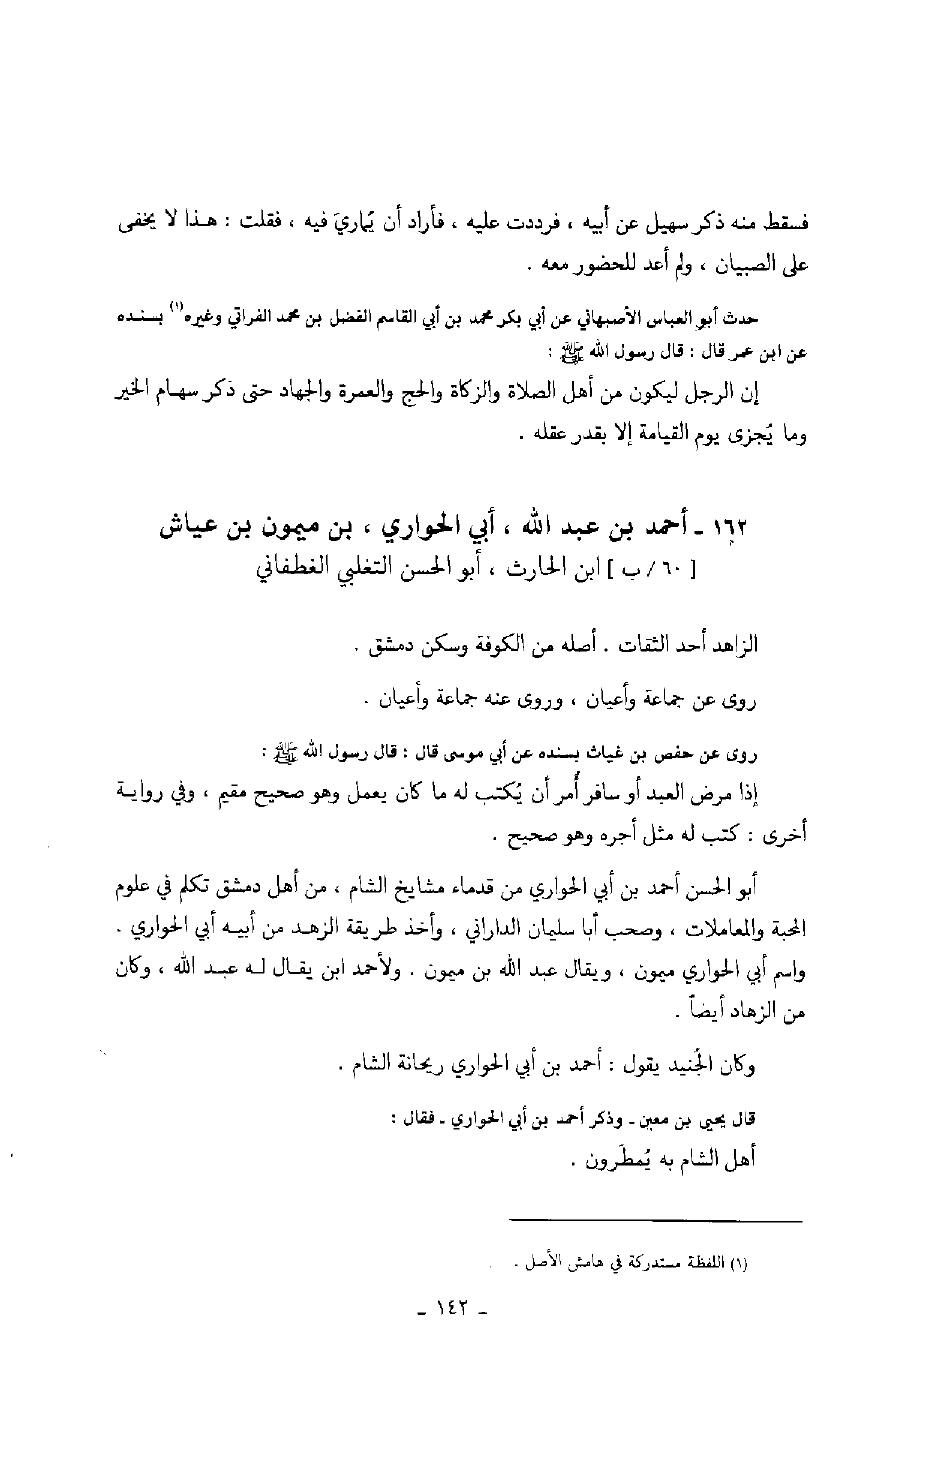 فسقط منه ذكر سهيل عن أبيه ، فرددت عليه ، فأراد أن يُماريَ فيه ، فقلت : هذا لا يخفى
على الصبيان ، ولم أعد للحضور معه .
حدث أبو العباس الأصبهاني عن أبي بكر محمد بن أبي القاسم الفضل بن محمد الفراتي وغيره(١) بسنده
عن ابن عمر قال : قال رسول الله ﷺ :
إن الرجل ليكون من أهل الصلاة والزكاة والحج والعمرة والجهاد حتى ذكر سهام الخير
وما يُجزى يوم القيامة إلا بقدر عقله .
١٦٢ ـ أحمد بن عبد الله ، أبي الحواري ، بن ميمون بن عياش
[ ٦٠ / ب ] ابن الحارث ، أبو الحسن التغلبي الغطفاني
الزاهد أحد الثقات . أصله من الكوفة وسكن دمشق .
روى عن جماعة وأعيان ، وروى عنه جماعة وأعيان .
روى عن حفص بن غياث بسنده عن أبي موسى قال : قال رسول الله ﷺ :
إذا مرض العبد أو سافر أُمر أن يُكتب له ما كان يعمل وهو صحيح مقيم ، وفي رواية
أخرى : كتب له مثل أجره وهو صحيح .
أبو الحسن أحمد بن أبي الحواري من قدماء مشايخ الشام ، من أهل دمشق تكلم في علوم
المحبة والمعاملات ، وصحب أبا سليمان الداراني ، وأخذ طريقة الزهد من أبيه أبي الحواري .
واسم أبي الحواري ميمون ، ويقال عبد الله بن ميمون . ولأحمد ابن يقال له عبد الله ، وكان
من الزهاد أيضاً .
وكان الجُنيد يقول : أحمد بن أبي الحواري ريحانة الشام .
قال يحيى بن معين ـ وذكر أحمد بن أبي الحواري ـ فقال :
أهل الشام به يُمطَرون .
(١) اللفظة مستدركة في هامش الأصل .
ـ ١٤٢ ـ